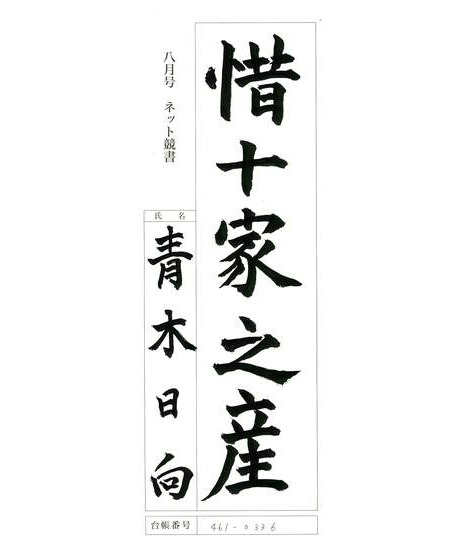 惜十家之産
八月号 ネット競書
氏名
青木日向
台帳番号 461-0336